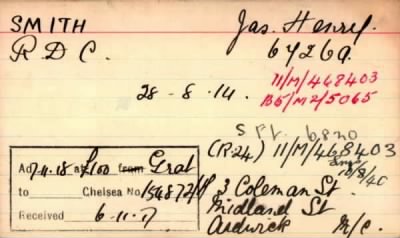 SMITH Jas. Henry.
R.D.C. 6426a.
28-8-14. 11/M/468403
B5/M2/5065
S Pt. 6820
(R.24) 11/M/468403
10/8/40
Ad 7.4.18 at £100 from Grat
to Chelsea No 154872/M
Received 6-11-17
3 Coleman St.
Midland St
Ardwick M/C.